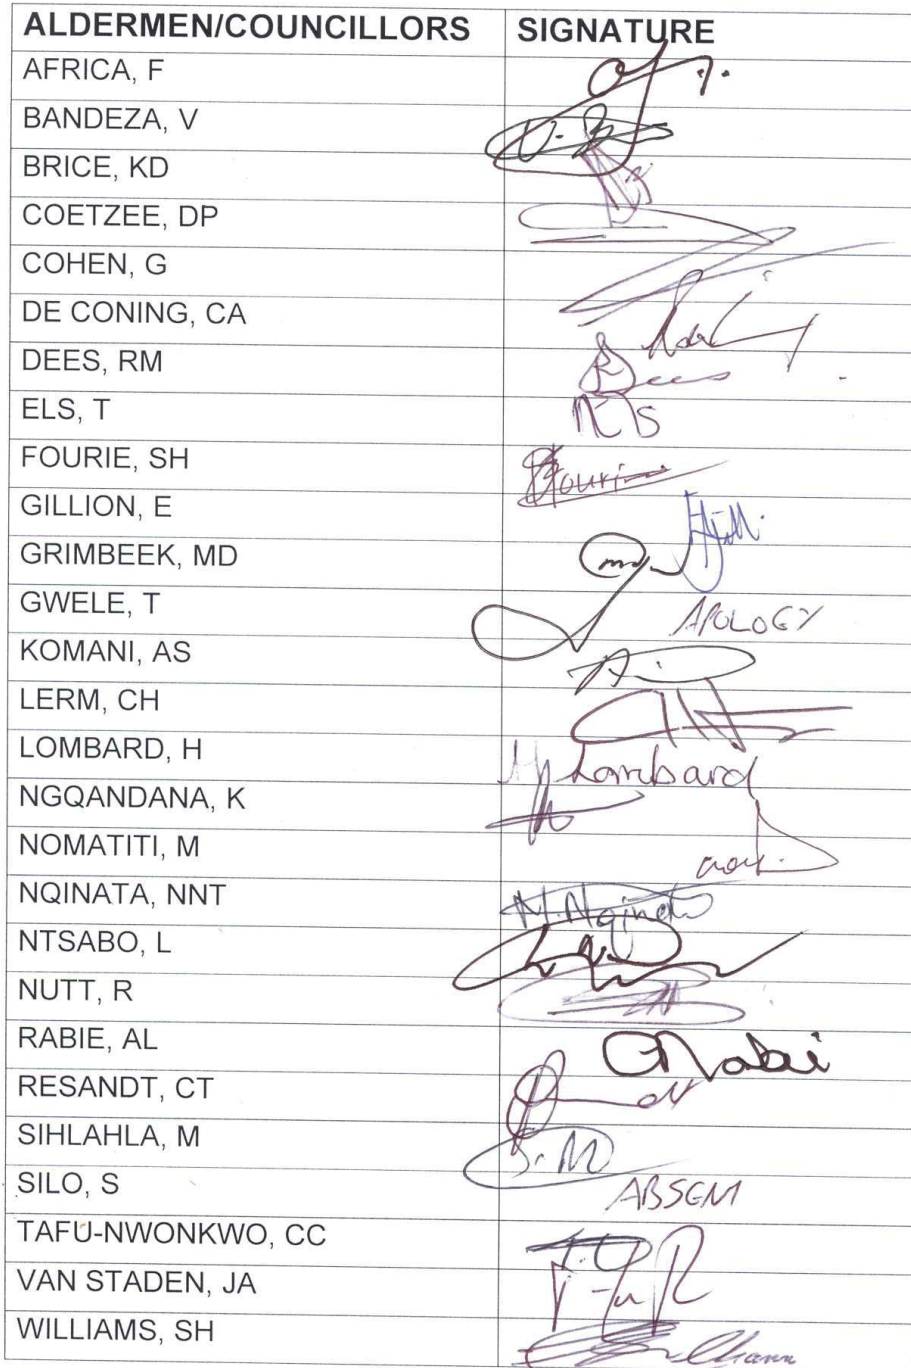 ALDERMEN/COUNCILLORS SIGNATURE
AFRICA, F
BANDEZA, V
BRICE, KD
COETZEE, DP
COHEN, G
DE CONING, CA
DEES, RM Dees
ELS, T
FOURIE, SH Fourie
GILLION, E
GRIMBEEK, MD
GWELE, T APOLOGY
KOMANI, AS
LERM, CH
LOMBARD, H H Lombard
NGQANDANA, K
NOMATITI, M
NQINATA, NNT N. Nqinata
NTSABO, L
NUTT, R
RABIE, AL Rabie
RESANDT, CT
SIHLAHLA, M S. M
SILO, S ABSENT
TAFU-NWONKWO, CC
VAN STADEN, JA
WILLIAMS, SH